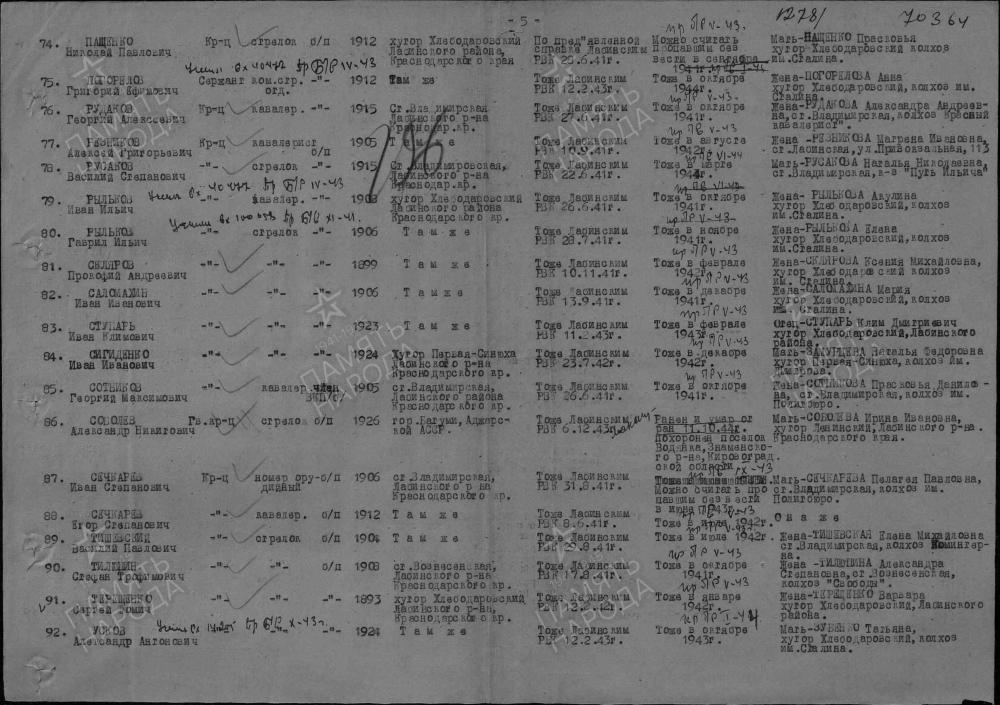 - 5 -
1278/
70364
74. ПАЩЕНКО Николай Павлович Кр-ц стрелок б/п 1912 хутор Хлебодаровский Лабинского района, Краснодарского края По предъявленной справке Лабинским РВК 28.6.41г. Можно считать пропавшим без вести в сентябре 1941г. Мать-ПАЩЕНКО Прасковья хутор Хлебодаровский колхоз им.Сталина.
75. ПОГОРЕЛОВ Григорий Ефимович Сержант ком.стр. отд. -"- 1912 Там же Тоже Лабинским РВК 12.2.43г. Тоже в октябре 1944г. Жена-ПОГОРЕЛОВА Анна хутор Хлебодаровский, колхоз им. Сталина.
76. РУДАКОВ Георгий Алексеевич Кр-ц кавалер. -"- 1915 Ст.Владимирская Лабинского р-на Краснодар.кр. Тоже Лабинским РВК 27.6.41г. Тоже в октябре 1941г. Жена-РУДАКОВА Александра Андреевна, ст.Владимирская, колхоз Красный кавалерист".
77. РЕЗНИКОВ Алексей Григорьевич Кр-ц кавалерист б/п 1905 Там же Тоже Лабинским РВК 10.9.41г. Тоже в августе 1942г. Жена -РЕЗНИКОВА Матрена Ивановна, ст.Лабинская, ул.Привокзальная, 113
78. РУСАКОВ Василий Степанович -"- стрелок -"- 1915 Ст.Владимировская, Лабинского р-на Краснодар.кр. Тоже Лабинским РВК 22.6.41г. Тоже в марте Мать-РУСАКОВА Наталья Николаевна, ст.Владимирская, к-з "Путь Ильича"
79. РЫЛЬКОВ Иван Ильич -"- кавалер. -"- 1908 хутор Хлебодаровский Лабинского района Краснодарского кр. Тоже Лабинским РВК 26.6.41г. Тоже в октябре 1941г. Жена- РЫЛЬКОВА Акулина хутор Хлебодаровский, колхоз им.Сталина.
80. РЫЛЬКОВ Гаврил Ильич -"- стрелок -"- 1906 Там же Тоже Лабинским РВК 28.7.41г. Тоже в ноябре 1941г. Жена-РЫЛЬКОВА Елена хутор Хлебодаровский, колхоз им.Сталина.
81. СКЛЯРОВ Прокофий Андреевич -"- -"- -"- 1899 Там же Тоже Лабинским РВК 10.11.41г. Тоже в феврале 1942г. Жена-СКЛЯРОВА Ксения Михайловна, хутор Хлебодаровский колхоз им. Сталина.
82. САЛОМАХИН Иван Иванович -"- -"- -"- 1906 Там же Тоже Лабинским РВК 13.9.41г. Тоже в декабре 1941г. Жена-САЛОМАХИНА Мария хутор Хлебодаровский, колхоз им.Сталина.
83. СТУПАРЬ Иван Климович -"- -"- -"- 1923 Там же Тоже Лабинским РВК 11.2.43г. Тоже в феврале 1943г. Отец-СТУПАРЬ Клим Дмитриевич хутор Хлебодаровский, Лабинского района.
84. СИГИДЕНКО Иван Иванович -"- -"- -"- 1924 Хутор Первая-Синюха Лабинского р-на Краснодарского кр. Тоже Лабинским РВК 23.7.42г. Тоже в декабре 1942г. Мать- Наталья Федоровна хутор Первая-Синюха, колхоз им.
85. СОТНИКОВ Георгий Максимович -"- кавалер. член ВКП/б/ 1905 ст.Владимирская, Лабинского района Краснодарского кр. Тоже Лабинским РВК 26.6.41г. Тоже в октябре 1941г. Жена-СОТНИКОВА Прасковья Даниловна, ст.Владимирская, колхоз им. Политбюро.
86. СОБОЛЕВ Александр Никитович Гв.кр-ц стрелок б/п 1926 гор.Батуми, Аджарской АССР. Тоже Лабинским РВК 6.12.43г. Ранен и умер от ран 11.10.44г. Похоронен поселок Водяйка, Знаменского р-на, Кировоградской области Мать-СОБОЛЕВА Ирина Ивановна, хутор Ленинский, Лабинского р-на. Краснодарского края.
87. СЕЧКАРЕВ Иван Степанович Кр-ц номер орудийный б/п 1906 ст.Владимирская, Лабинского р-на Краснодарского кр. Тоже Лабинским РВК 31.8.41г. Можно считать пропавшим без вести в июне 1943г. Мать-СЕЧКАРЕВА Пелагея Павловна, ст.Владимирская, колхоз им. Политбюро.
88. СЕЧКАРЕВ Егор Степанович -"- кавалер. б/п 1912 Там же Тоже Лабинским РВК 8.6.41г. Тоже в 1942г. Она же
89. ТИШЕВСКИЙ Василий Павлович -"- стрелок б/п 1904 Там же Тоже Лабинским РВК 29.8.41г. Тоже в июле 1942г. Жена-ТИШЕВСКАЯ Елена Михайловна ст.Владимирская, колхоз Коминтерна.
90. ТИЛЮПИН Стефан Трофимович -"- -"- б/п 1908 ст.Вознесенская, Лабинского р-на Краснодарского кр. Тоже Лабинским РВК 17.8.41г. Тоже в октябре 1941г. Жена -ТИЛЮПИНА Александра Степановна, ст.Вознесенская, колхоз "Свободы".
91. ТЕРЕЩЕНКО Сергей Фомич -"- -"- -"- 1893 хутор Хлебодаровский Лабинского р-на, Краснодарского кр. Тоже Лабинским РВК 12.2.42г. Тоже в январе 1942г. Жена-ТЕРЕЩЕНКО Варвара хутор Хлебодаровский, Лабинского района.
92. УСКОВ Александр Антонович -"- -"- -"- 1924 Там же Тоже Лабинским РВК 12.2.43г. Тоже в октябре 1943г. Мать-ЗУБЕНКО Татьяна, хутор Хлебодаровский, колхоз им.Сталина.
ПАМЯТЬ НАРОДА